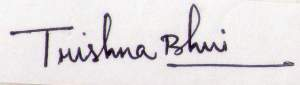 Trishna Bhui